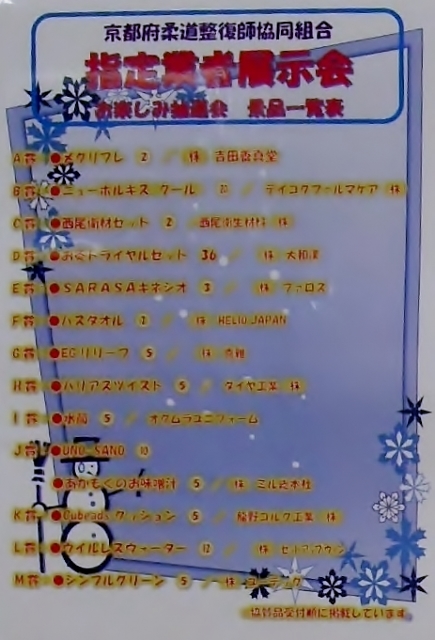 京都府柔道整復師協同組合
指定業者展示会
お楽しみ抽選会 景品一覧表
A賞 ●メクリフレ ② / (株)吉田養真堂
B賞 ●ニューホルキス クール ⑳ / テイコクファルマケア(株)
C賞 ●西尾衛材セット ② / 西尾衛生材料(株)
D賞 ●お灸トライヤルセット 36 / (株)大和漢
E賞 ●SARASAキネシオ ③ / (株)ファロス
F賞 ●バスタオル ② / (株)HELIO JAPAN
G賞 ●EGリリーフ ⑤ / (株)
H賞 ●バリアスツイスト ⑤ / ダイヤ工業(株)
I賞 ●水筒 ⑤ / オグムラユニフォーム
J賞 ●UNO-SANO ⑩
●あかもくのお味噌汁 ⑤ / (株)ミル総本社
K賞 ●Cubeads クッション ⑤ / 龍野コルク工業(株)
L賞 ●ウイルレスウォーター ⑫ / (株)
M賞 ●シンプルクリーン ⑤ / (株)
協賛品受付順に掲載しています。